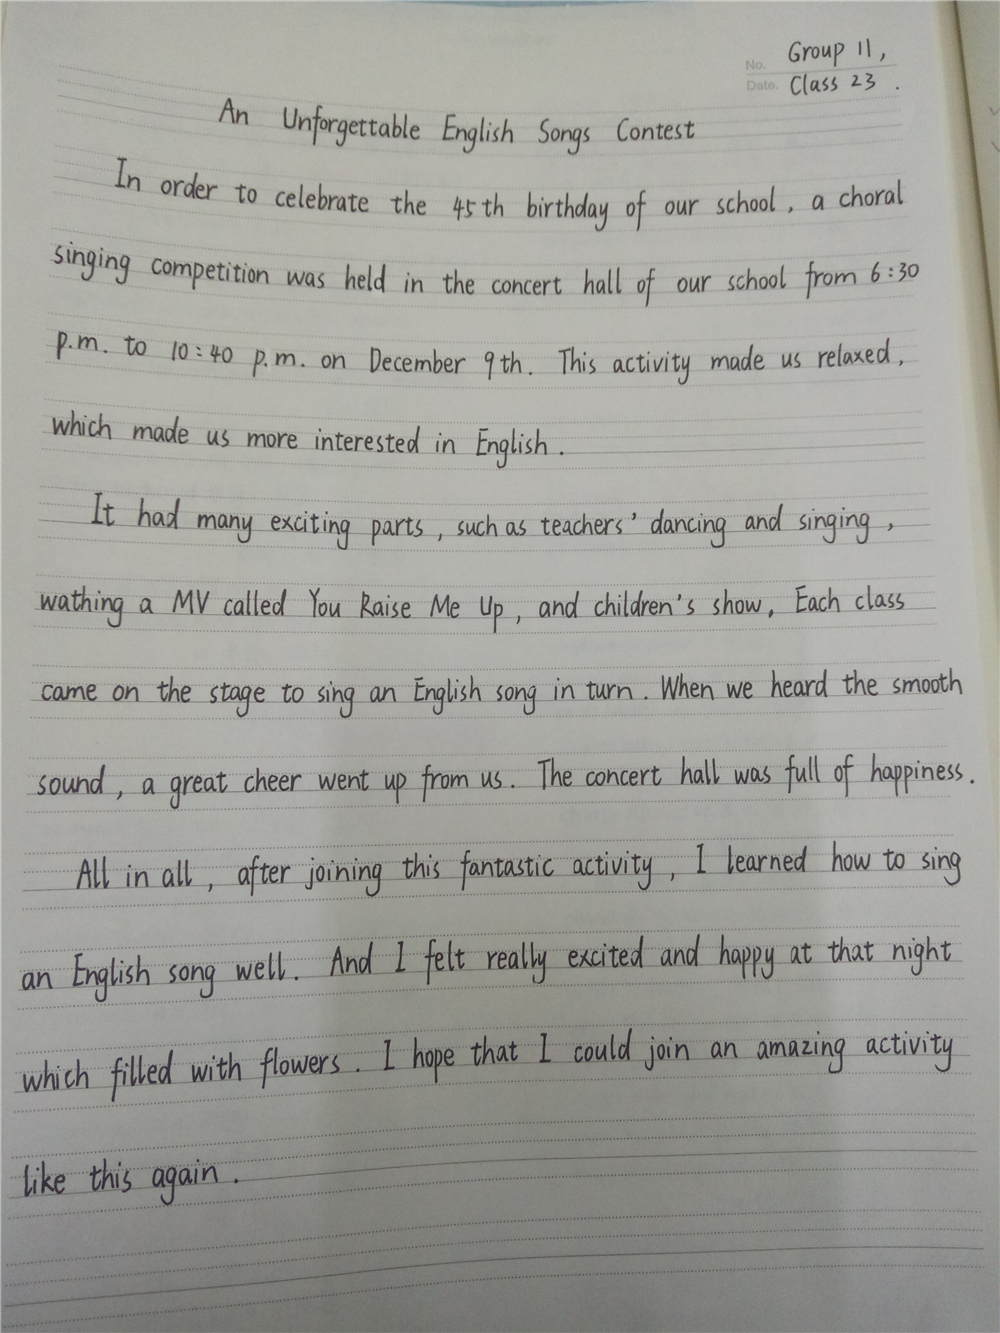 No. Group 11,
Date. Class 23.
An Unforgettable English Songs Contest
In order to celebrate the 45th birthday of our school, a choral
singing competition was held in the concert hall of our school from 6:30
p.m. to 10:40 p.m. on December 9th. This activity made us relaxed,
which made us more interested in English.
It had many exciting parts, such as teachers' dancing and singing,
wathing a MV called You Raise Me Up, and children's show, Each class
came on the stage to sing an English song in turn. When we heard the smooth
sound, a great cheer went up from us. The concert hall was full of happiness.
All in all, after joining this fantastic activity, I learned how to sing
an English song well. And I felt really excited and happy at that night
which filled with flowers. I hope that I could join an amazing activity
like this again.